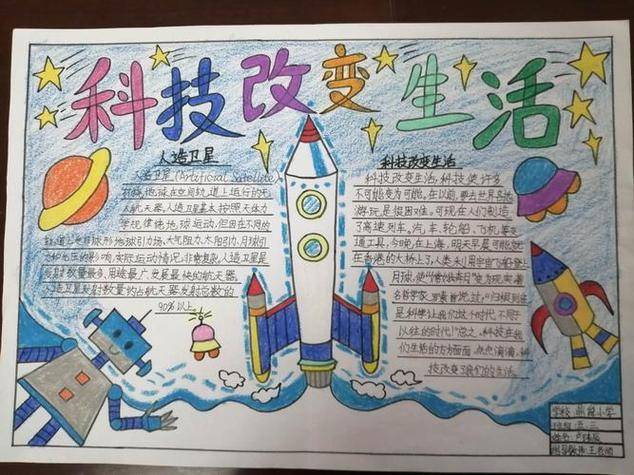 科技改变生活
人造卫星
人造卫星(Artificial Satellite)
环绕地球在空间轨道上运行的无
人航天器。人造卫星基本按照天体力
学规律绕地球运动,但因在不同的
轨道上受非球形地球引力场、大气阻力、太阳引力、月球引
力和光压的影响,实际运动情况非常复杂。人造卫星是
发射数量最多、用途最广、发展最快的航天器。
人造卫星发射数量约占航天器发射总数的
90%以上。
科技改变生活
科技改变生活,科技使许多
不可能变为可能。在以前,要去世界各地
游玩是很困难。可现在人们制造
了高速列车、汽车、轮船、飞机等交
通工具,今晚,在上海,明天早晨可能就
在香港的大桥上了。人类利用宇宙飞船登上
月球,使"嫦娥奔月"变为现实。著
名哲学家罗素曾说过:"归根到底
是科学让我们这个时代不同于
以往的时代!"总之,科技在我
们生活的方方面面,点点滴滴,科
技改变了我们的生活。
学校:小学
班级:三
姓名:卢
指导教师:王